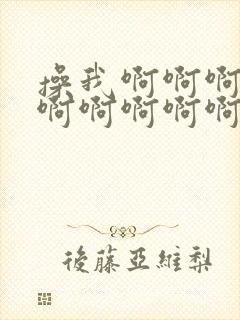 操我 啊啊啊
啊啊啊啊啊
後藤亞維梨